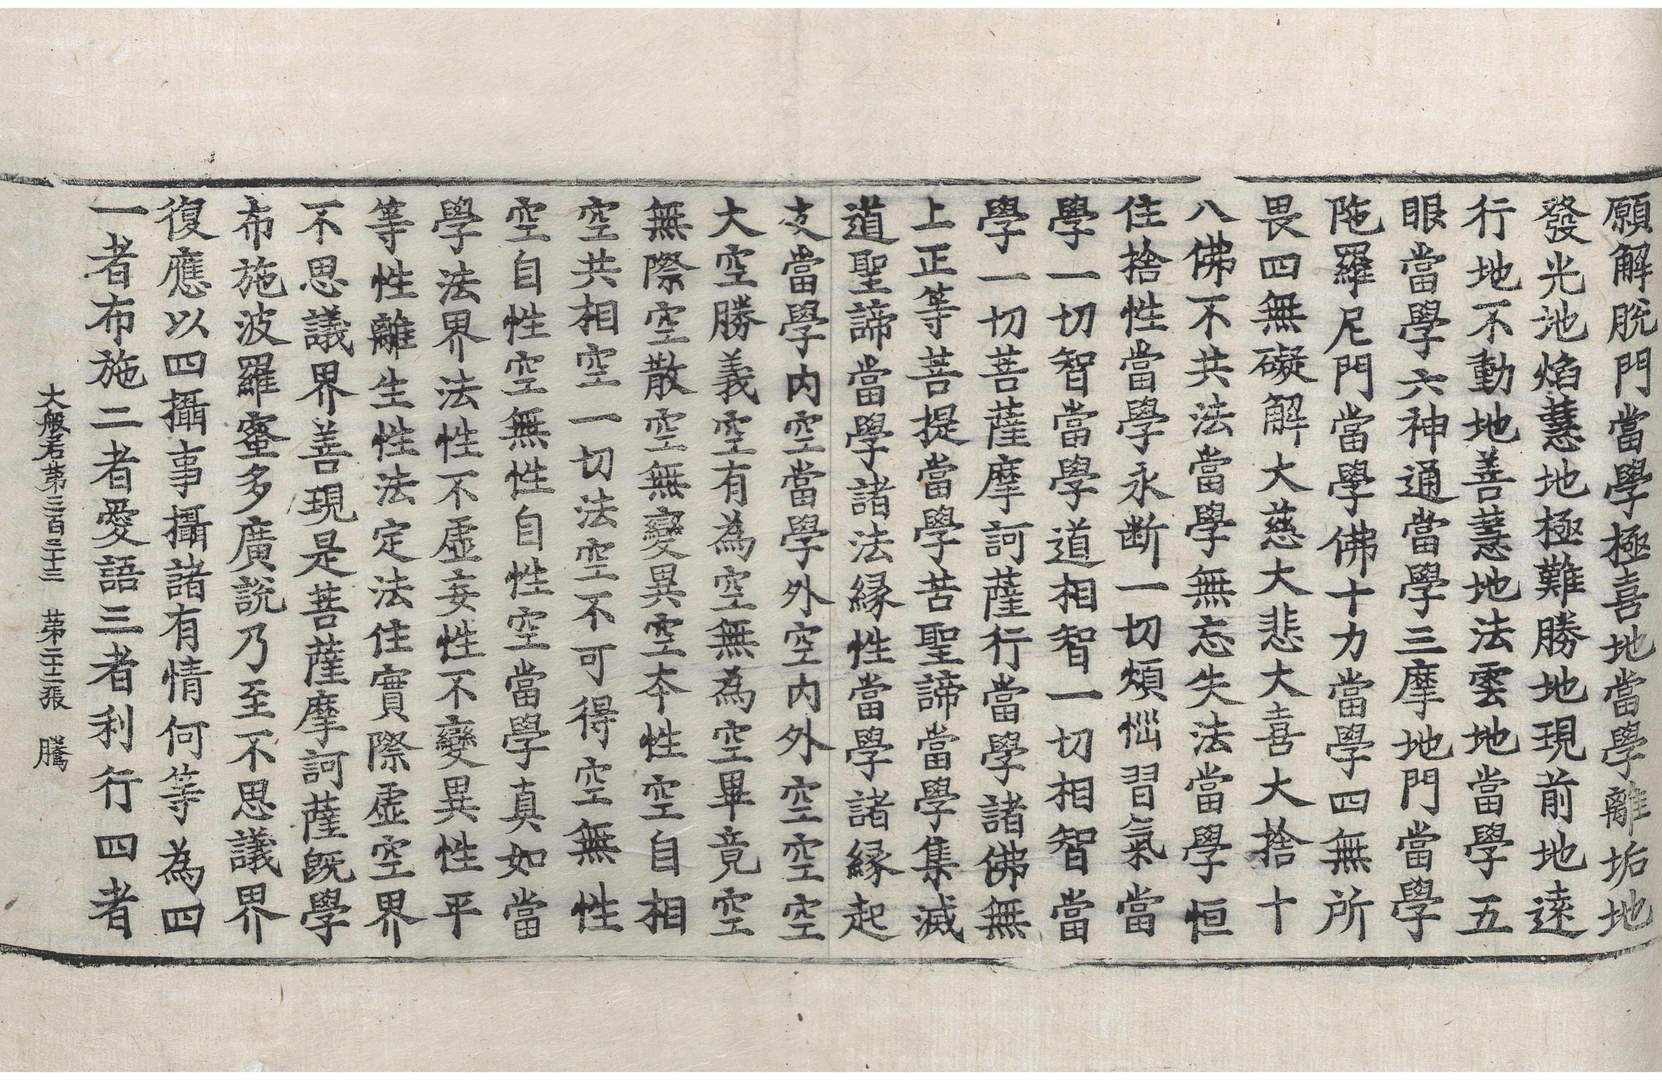 願解脫門當學極喜地當學離垢地
發光地焰慧地極難勝地現前地遠
行地不動地善慧地法雲地當學五
眼當學六神通當學三摩地門當學
陁羅尼門當學佛十力當學四無所
畏四無礙解大慈大悲大喜大捨十
八佛不共法當學無忘失法當學恒
住捨性當學永断一切煩惱習氣當
學一切智當學道相智一切相智當
學一切菩薩摩訶薩行當學諸佛無
上正等菩提當學苦聖諦當學集滅
道聖諦當學諸法緣性當學諸緣起
支當學內空當學外空內外空空空
大空勝義空有為空無為空畢竟空
無際空散空無變異空本性空自相
空共相空一切法空不可得空無性
空自性空無性自性空當學真如當
學法界法性不虛妄性不變異性平
等性離生性法定法住實際虛空界
不思議界善現是菩薩摩訶薩旣學
布施波羅蜜多廣說乃至不思議界
復應以四攝事攝諸有情何等為四
一者布施二者愛語三者利行四者
大般若第三百三十三 第二十二張 騰